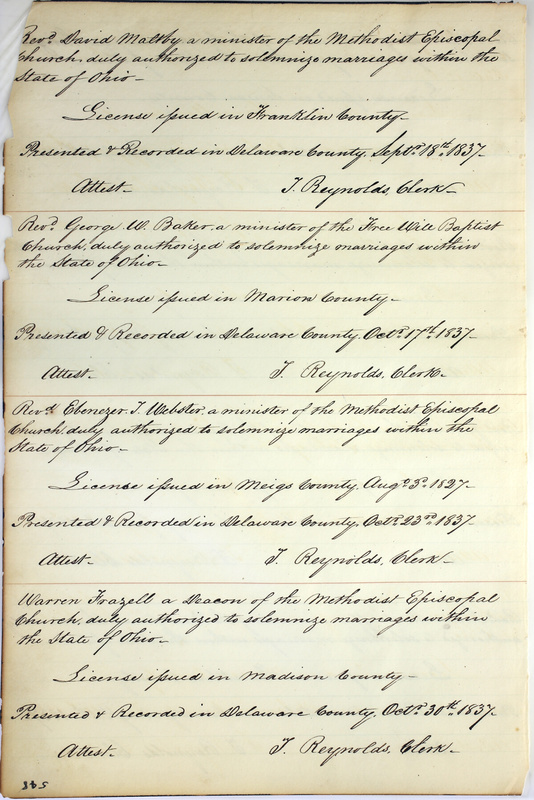 Rev.d David Maltby a minister of the Methodist Episcopal
Church, duly authorized to solemnize marriages within the
State of Ohio—
License issued in Franklin County—
Presented & Recorded in Delaware County, Sept.r 18th 1837—
Attest— T. Reynolds, Clerk—
Rev.d George W. Baker, a minister of the Free Will Baptist
Church, duly authorized to solemnize marriages within
the State of Ohio—
License issued in Marion County—
Presented & Recorded in Delaware County, Oct.r 17th 1837—
Attest— T. Reynolds, Clerk—
Rev.d Ebenezer T. Webster, a minister of the Methodist Episcopal
Church, duly authorized to solemnize marriages within the
State of Ohio—
License issued in Meigs County, Aug. 3d 1827—
Presented & Recorded in Delaware County, Oct.r 23rd 1837—
Attest— T. Reynolds, Clerk—
Warren Frazell a Deacon of the Methodist Episcopal
Church, duly authorized to solemnize marriages within
the State of Ohio—
License issued in Madison County—
Presented & Recorded in Delaware County, Oct.r 30th 1837—
Attest— T. Reynolds, Clerk—